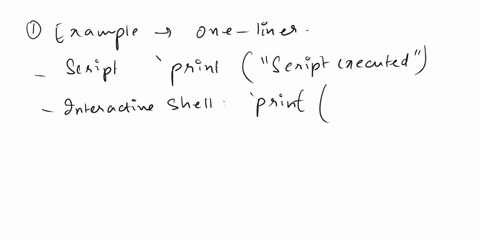 ① Example → one-liner.
- Script `print ("Script executed")
- Interactive Shell: `print (